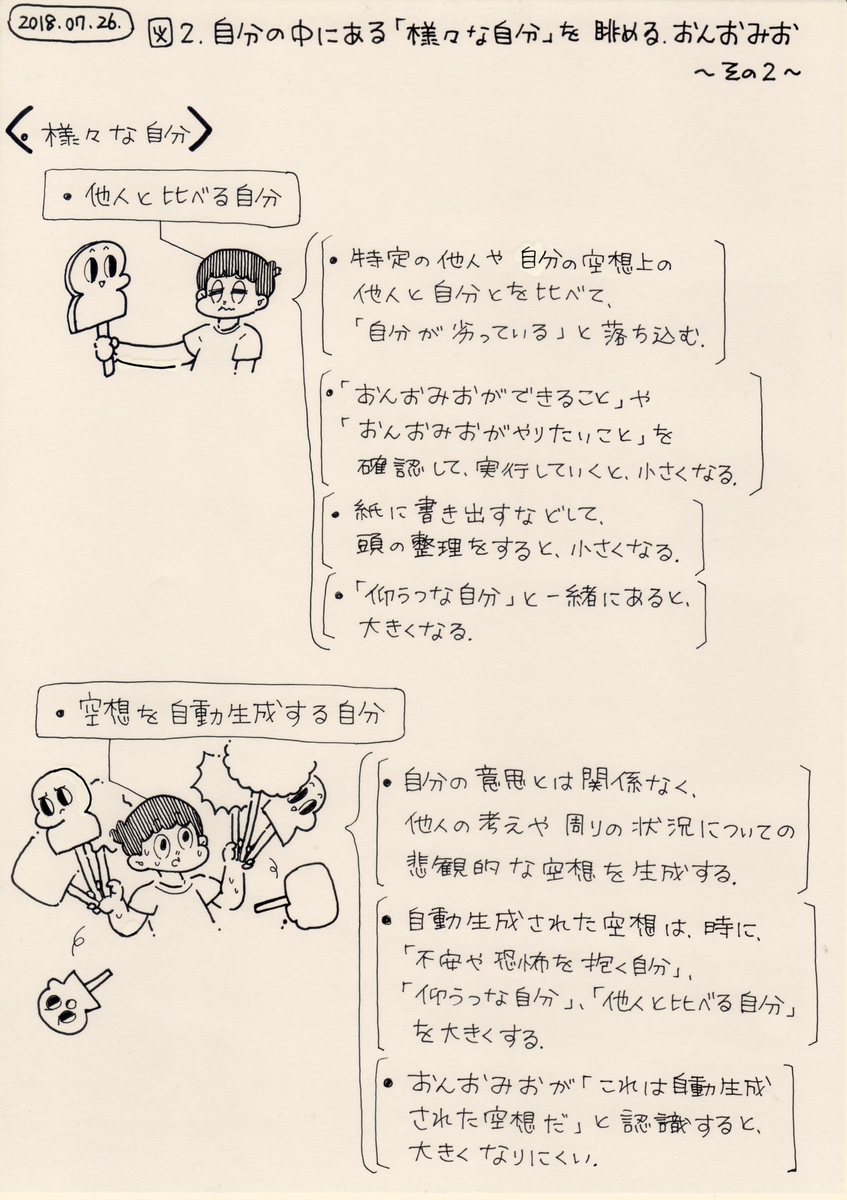 2018.07.26.
図2. 自分の中にある「様々な自分」を眺める.おんおみお
〜その2〜
〈・様々な自分〉
・他人と比べる自分
・特定の他人や自分の空想上の
他人と自分とを比べて、
「自分が劣っている」と落ち込む.
・「おんおみおができること」や
「おんおみおがやりたいこと」を
確認して、実行していくと、小さくなる.
・紙に書き出すなどして、
頭の整理をすると、小さくなる.
・「仰うつな自分」と一緒にあると、
大きくなる.
・空想を自動生成する自分
・自分の意思とは関係なく、
他人の考えや周りの状況についての
悲観的な空想を生成する.
・自動生成された空想は、時に、
「不安や恐怖を抱く自分」、
「仰うつな自分」、「他人と比べる自分」
を大きくする.
・おんおみおが「これは自動生成
された空想だ」と認識すると、
大きくなりにくい.